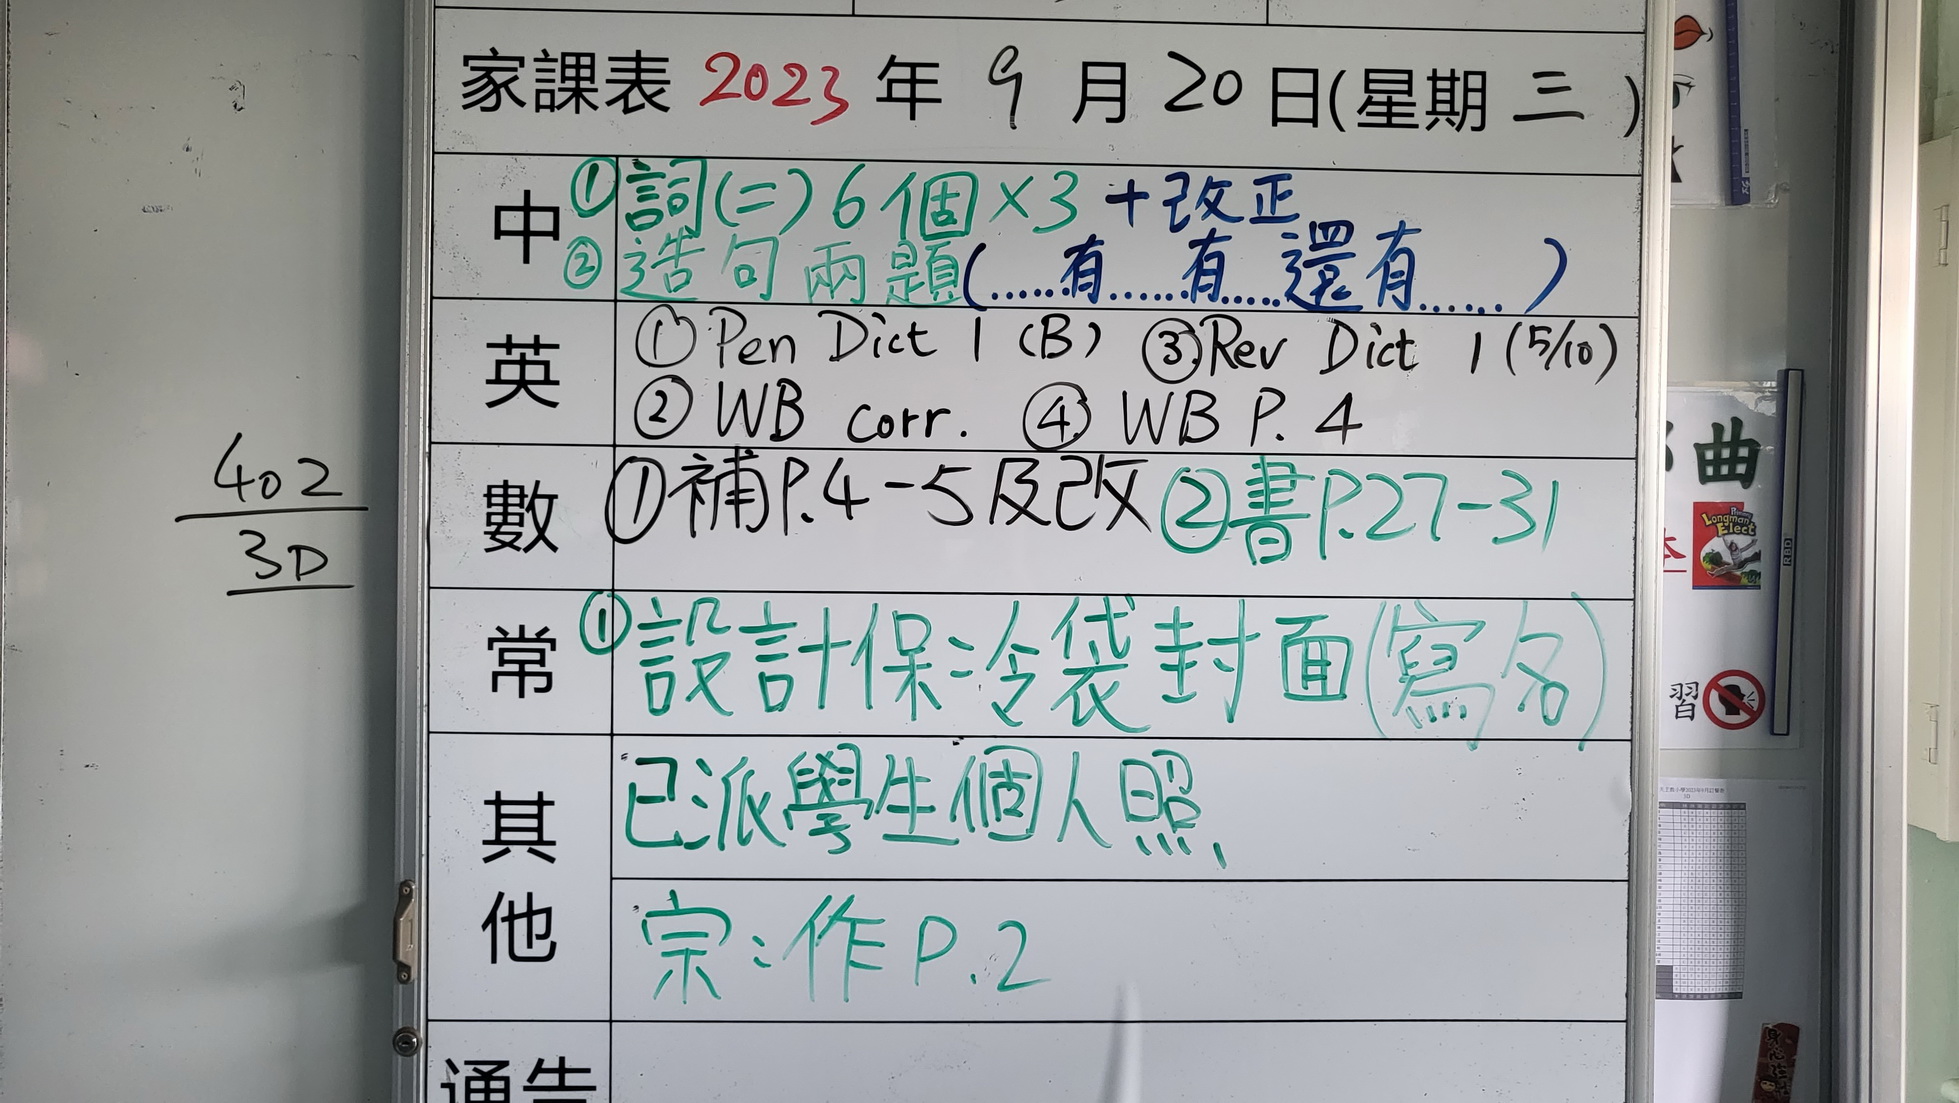 家課表 2023 年 9 月 20 日(星期 三 )
中
①詞(二)6個×3 +改正
②造句兩題(.....有.....有.....還有......)
英
①Pen Dict 1 (B) ③Rev Dict 1 (5/10)
②WB corr. ④WB P. 4
數
①補P.4-5及改 ②書P.27-31
402
3D
常
①設計保冷袋封面(寫名)
其他
已派學生個人照
宗:作P.2
通告
曲
Longman Elect
本
RBD
習